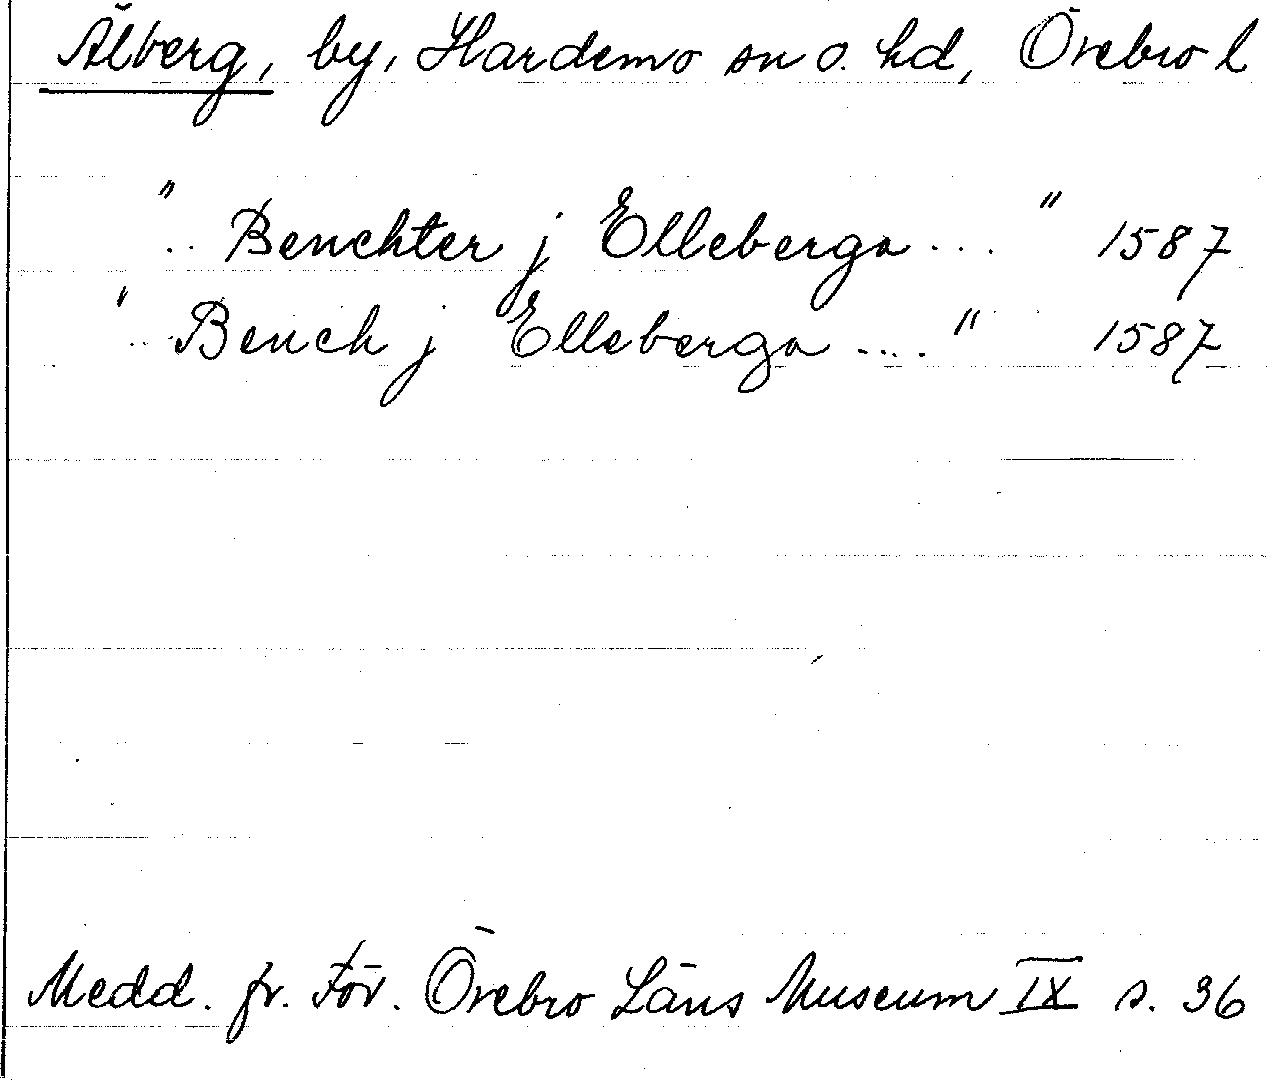 Älberg, by, Hardemo sn o. hd, Örebro l
" .. Benchter j Elleberga ... " 1587
" ... Bench j Elleberga .... " 1587
Medd. fr. För. Örebro Läns Museum IX s. 36